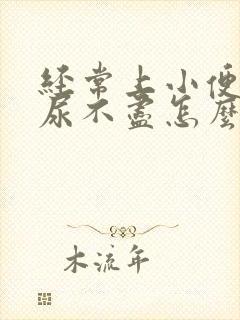 经常上小便
尿不盡怎麼
木流年